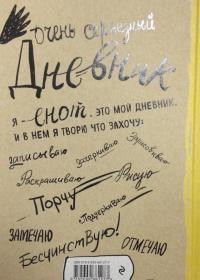 очень скучный
Дневник
Я - енот. Это мой дневник,
и в нем я творю что захочу:
записываю
зачеркиваю
зарисовываю
Раскрашиваю
Рисую
Порчу
Подчеркиваю
Замечаю
Бесчинствую!
Отмечаю